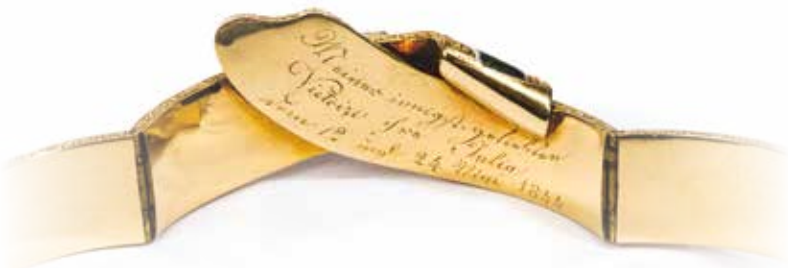 Meiner innigstgeliebten
Victoire von Julia
den 24 Mai 1844